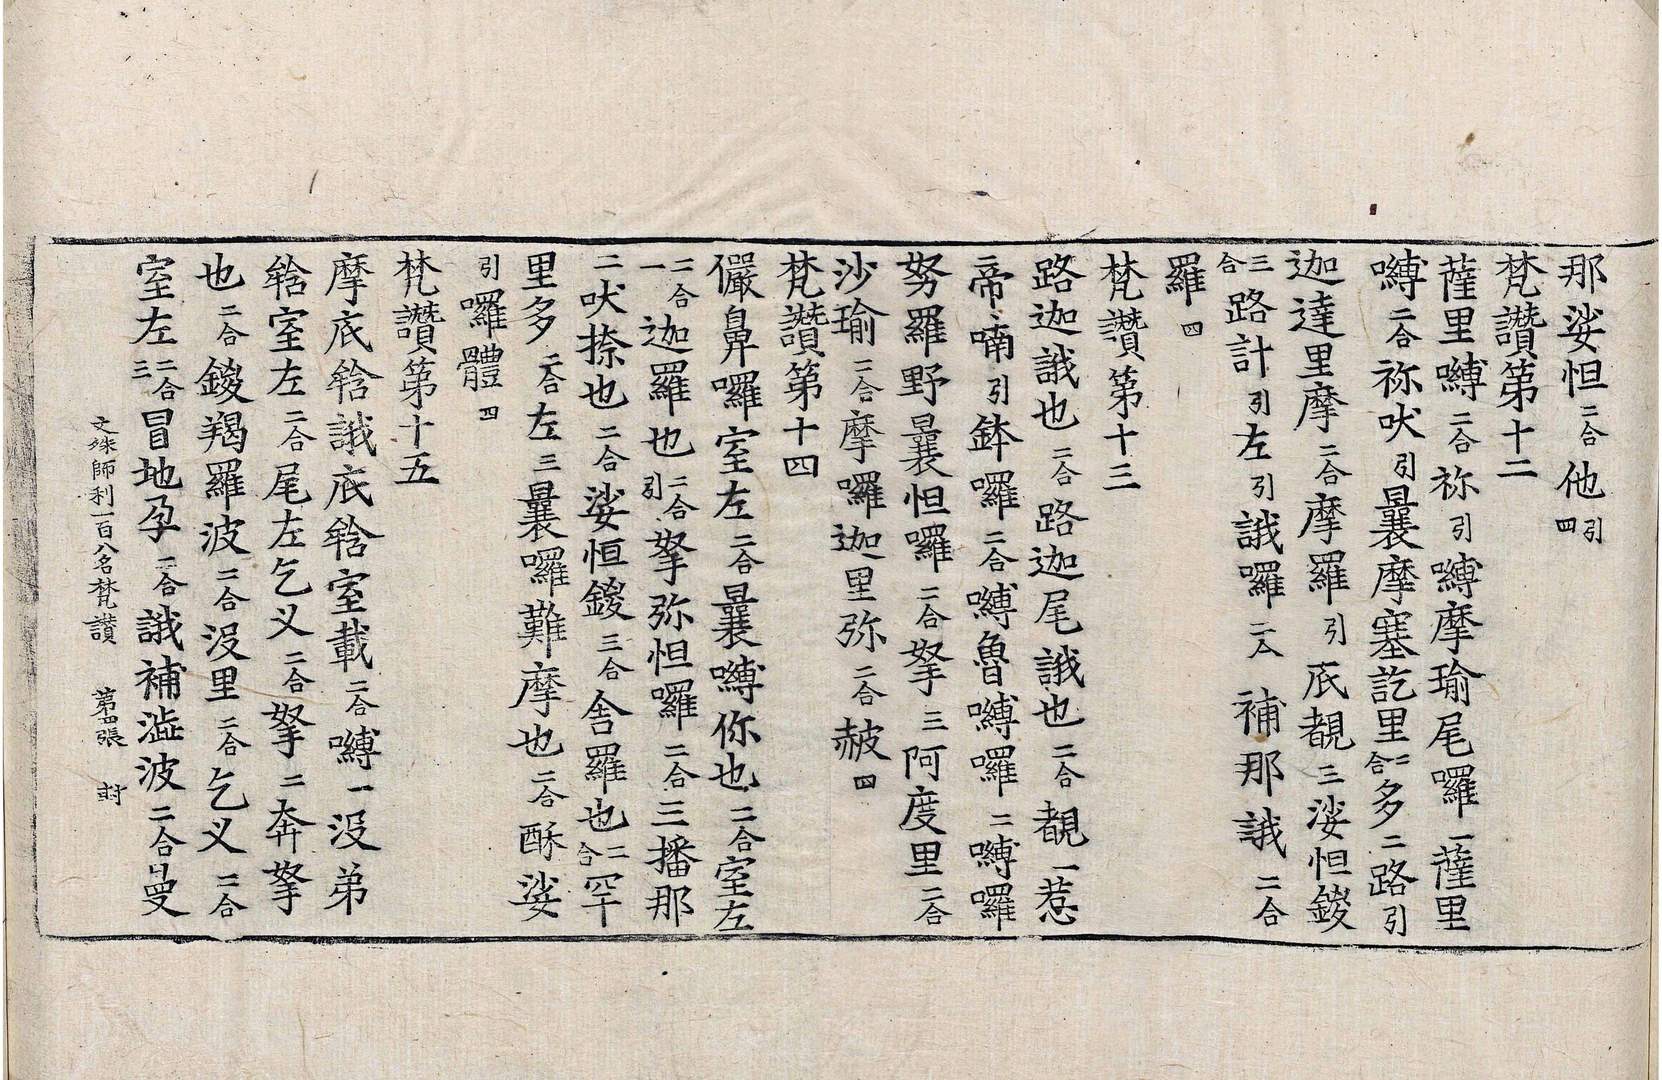 那娑怛二合他引四
梵讚第十二
薩里嚩二合祢引嚩摩瑜尾囉一薩里
嚩二合祢吠引曩摩塞訖里二合多二路引
迦達里摩二合摩羅引底覩三娑怛鍐
三合路計引左引誐囉二人補那誐二合
羅四
梵讚第十三
路迦誐也二合路迦尾誐也二合覩一惹
帝喃引鉢囉二合嚩魯嚩囉二嚩囉
努羅野曩怛囉二合拏三阿度里二合
沙瑜二合摩囉迦里弥二合赧四
梵讚第十四
儼鼻囉室左二合曩嚩你也二合室左
二合一迦羅也二合引拏弥怛囉二合三播那
二吠捺也二合娑恒鍐三合舍羅也二合罕
里多二合左三曩囉難摩也二合酥娑
引囉體四
梵讚第十五
摩底鎋誐底鎋室載二合嚩一没弟
鎋室左二合尾左乞义二合拏二奔拏
也二合鍐羯羅波二合没里二合乞义二合
室左二合三冒地孕二合誐補澁波二合曼
文殊師利一百八名梵讚 第四張 封